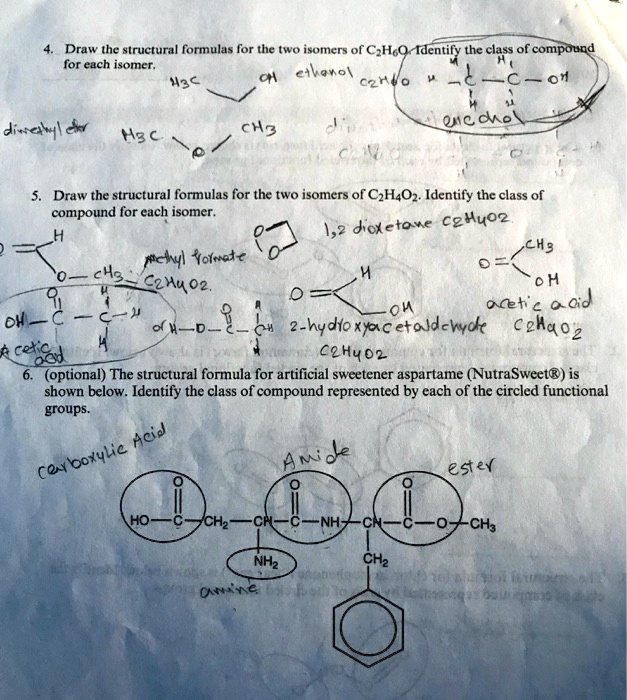 4. Draw the structural formulas for the two isomers of C₂H₆O. Identify the class of compound
for each isomer.
H3C OH ethanol C2H6O H - C - C - OH
H H
H H
dimethyl H3C O CH3
5. Draw the structural formulas for the two isomers of C₂H₄O₂. Identify the class of
compound for each isomer.
O O 1,2 dioxetane C2H4O2
H O CH3 methyl formate C2H4O2.
O CH3 OH acetic acid C2H4O2
O H OH 2-hydroxyacetaldehyde C2H4O2
OH - C - C - H
O H H
Acetic acid
or H-O-C-CH
6. (optional) The structural formula for artificial sweetener aspartame (NutraSweet®) is
shown below. Identify the class of compound represented by each of the circled functional
groups.
carboxylic Acid Amide ester
O O O
HO—C—CH₂—CH—C—NH—CH—C—O—CH₃
NH₂ CH₂
amine